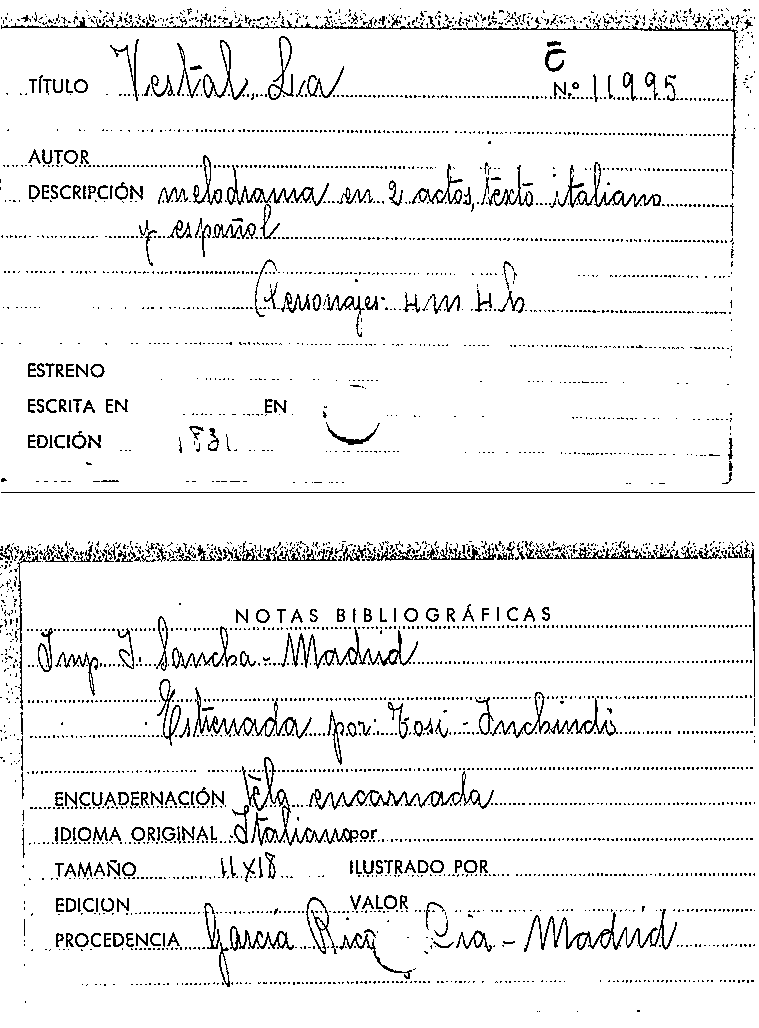 C̄
TÍTULO Vestal, La N.º 11995
AUTOR
DESCRIPCIÓN melodrama en 2 actos, texto italiano
y español
Personajes: 4m 4h
ESTRENO
ESCRITA EN EN
EDICIÓN 1831
NOTAS BIBLIOGRÁFICAS
Imp. I. Sancha - Madrid
Estrenada por: Tosi - Inchindi
ENCUADERNACIÓN tela encarnada
IDIOMA ORIGINAL Italiano por
TAMAÑO 11x18 ILUSTRADO POR
EDICION VALOR
PROCEDENCIA García Rico Cia - Madrid